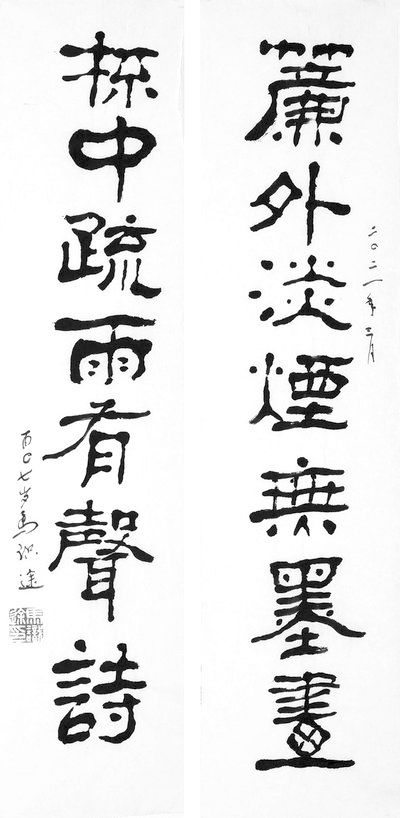 簾外淡煙無墨畫
二〇二一年三月
林中疏雨有聲詩
百〇七岁馬识途